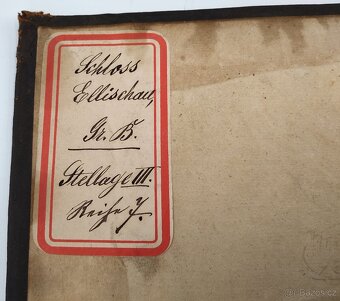 Schloss
Ellischau,
Gr. B.
Stellage III.
Reihe 7.
© Bazos.cz